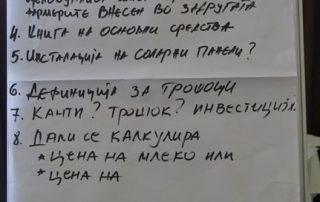 фармерите внесен во задругата
4. Книга на основни средства
5. Инсталација на соларни панели?
6. Дефиниција за трошоци
7. Канти? Трошок? Инвестиција.
8. Дали се калкулира
* Цена на млеко или
* Цена на